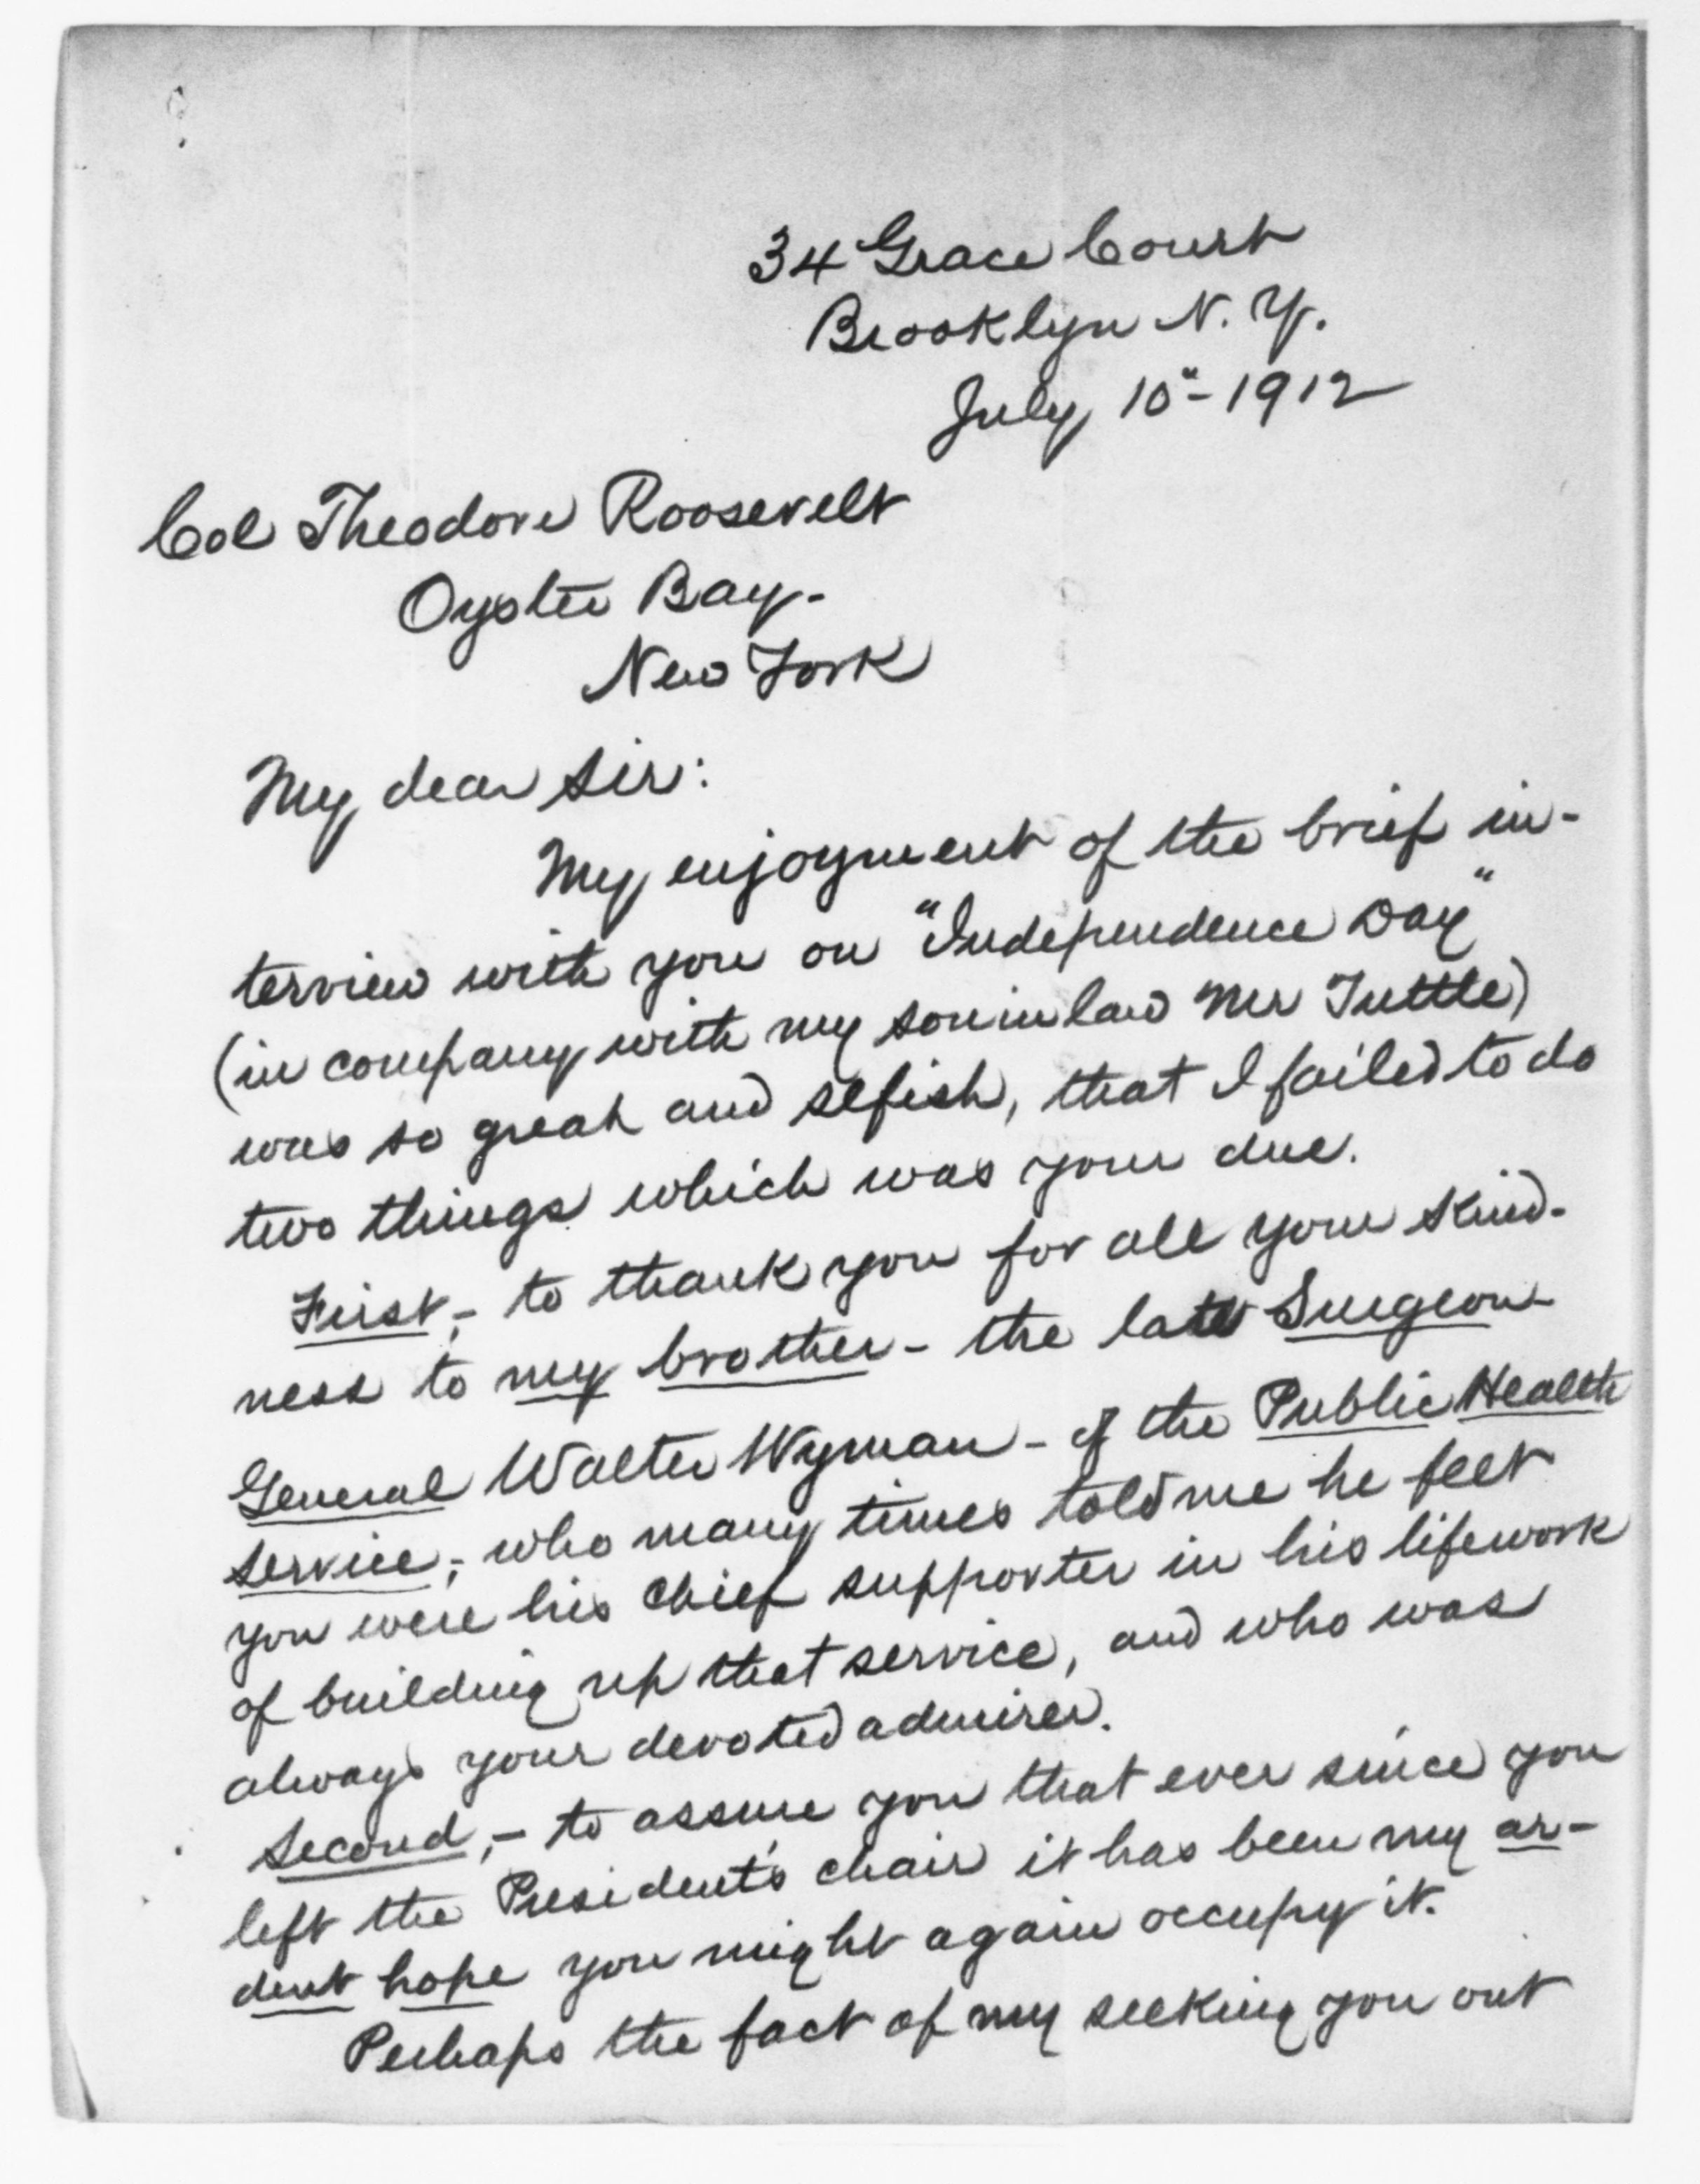 34 Grace Court
Brooklyn N.Y.
July 10"-1912
Col Theodore Roosevelt
Oyster Bay-
New York
My dear Sir:
My enjoyment of the brief in-
terview with you on "Independence Day"
(in company with my son in law Mr Tuttle)
was so great and selfish, that I failed to do
two things which was your due.
First,- to thank you for all your kind-
ness to my brother- the late Surgeon-
General Walter Wyman- of the Public Health
service,- who many times told me he felt
you were his chief supporter in his lifework
of building up that service, and who was
always your devoted admirer.
Second,- to assure you that ever since you
left the President's chair it has been my ar-
dent hope you might again occupy it.
Perhaps the fact of my seeking you out